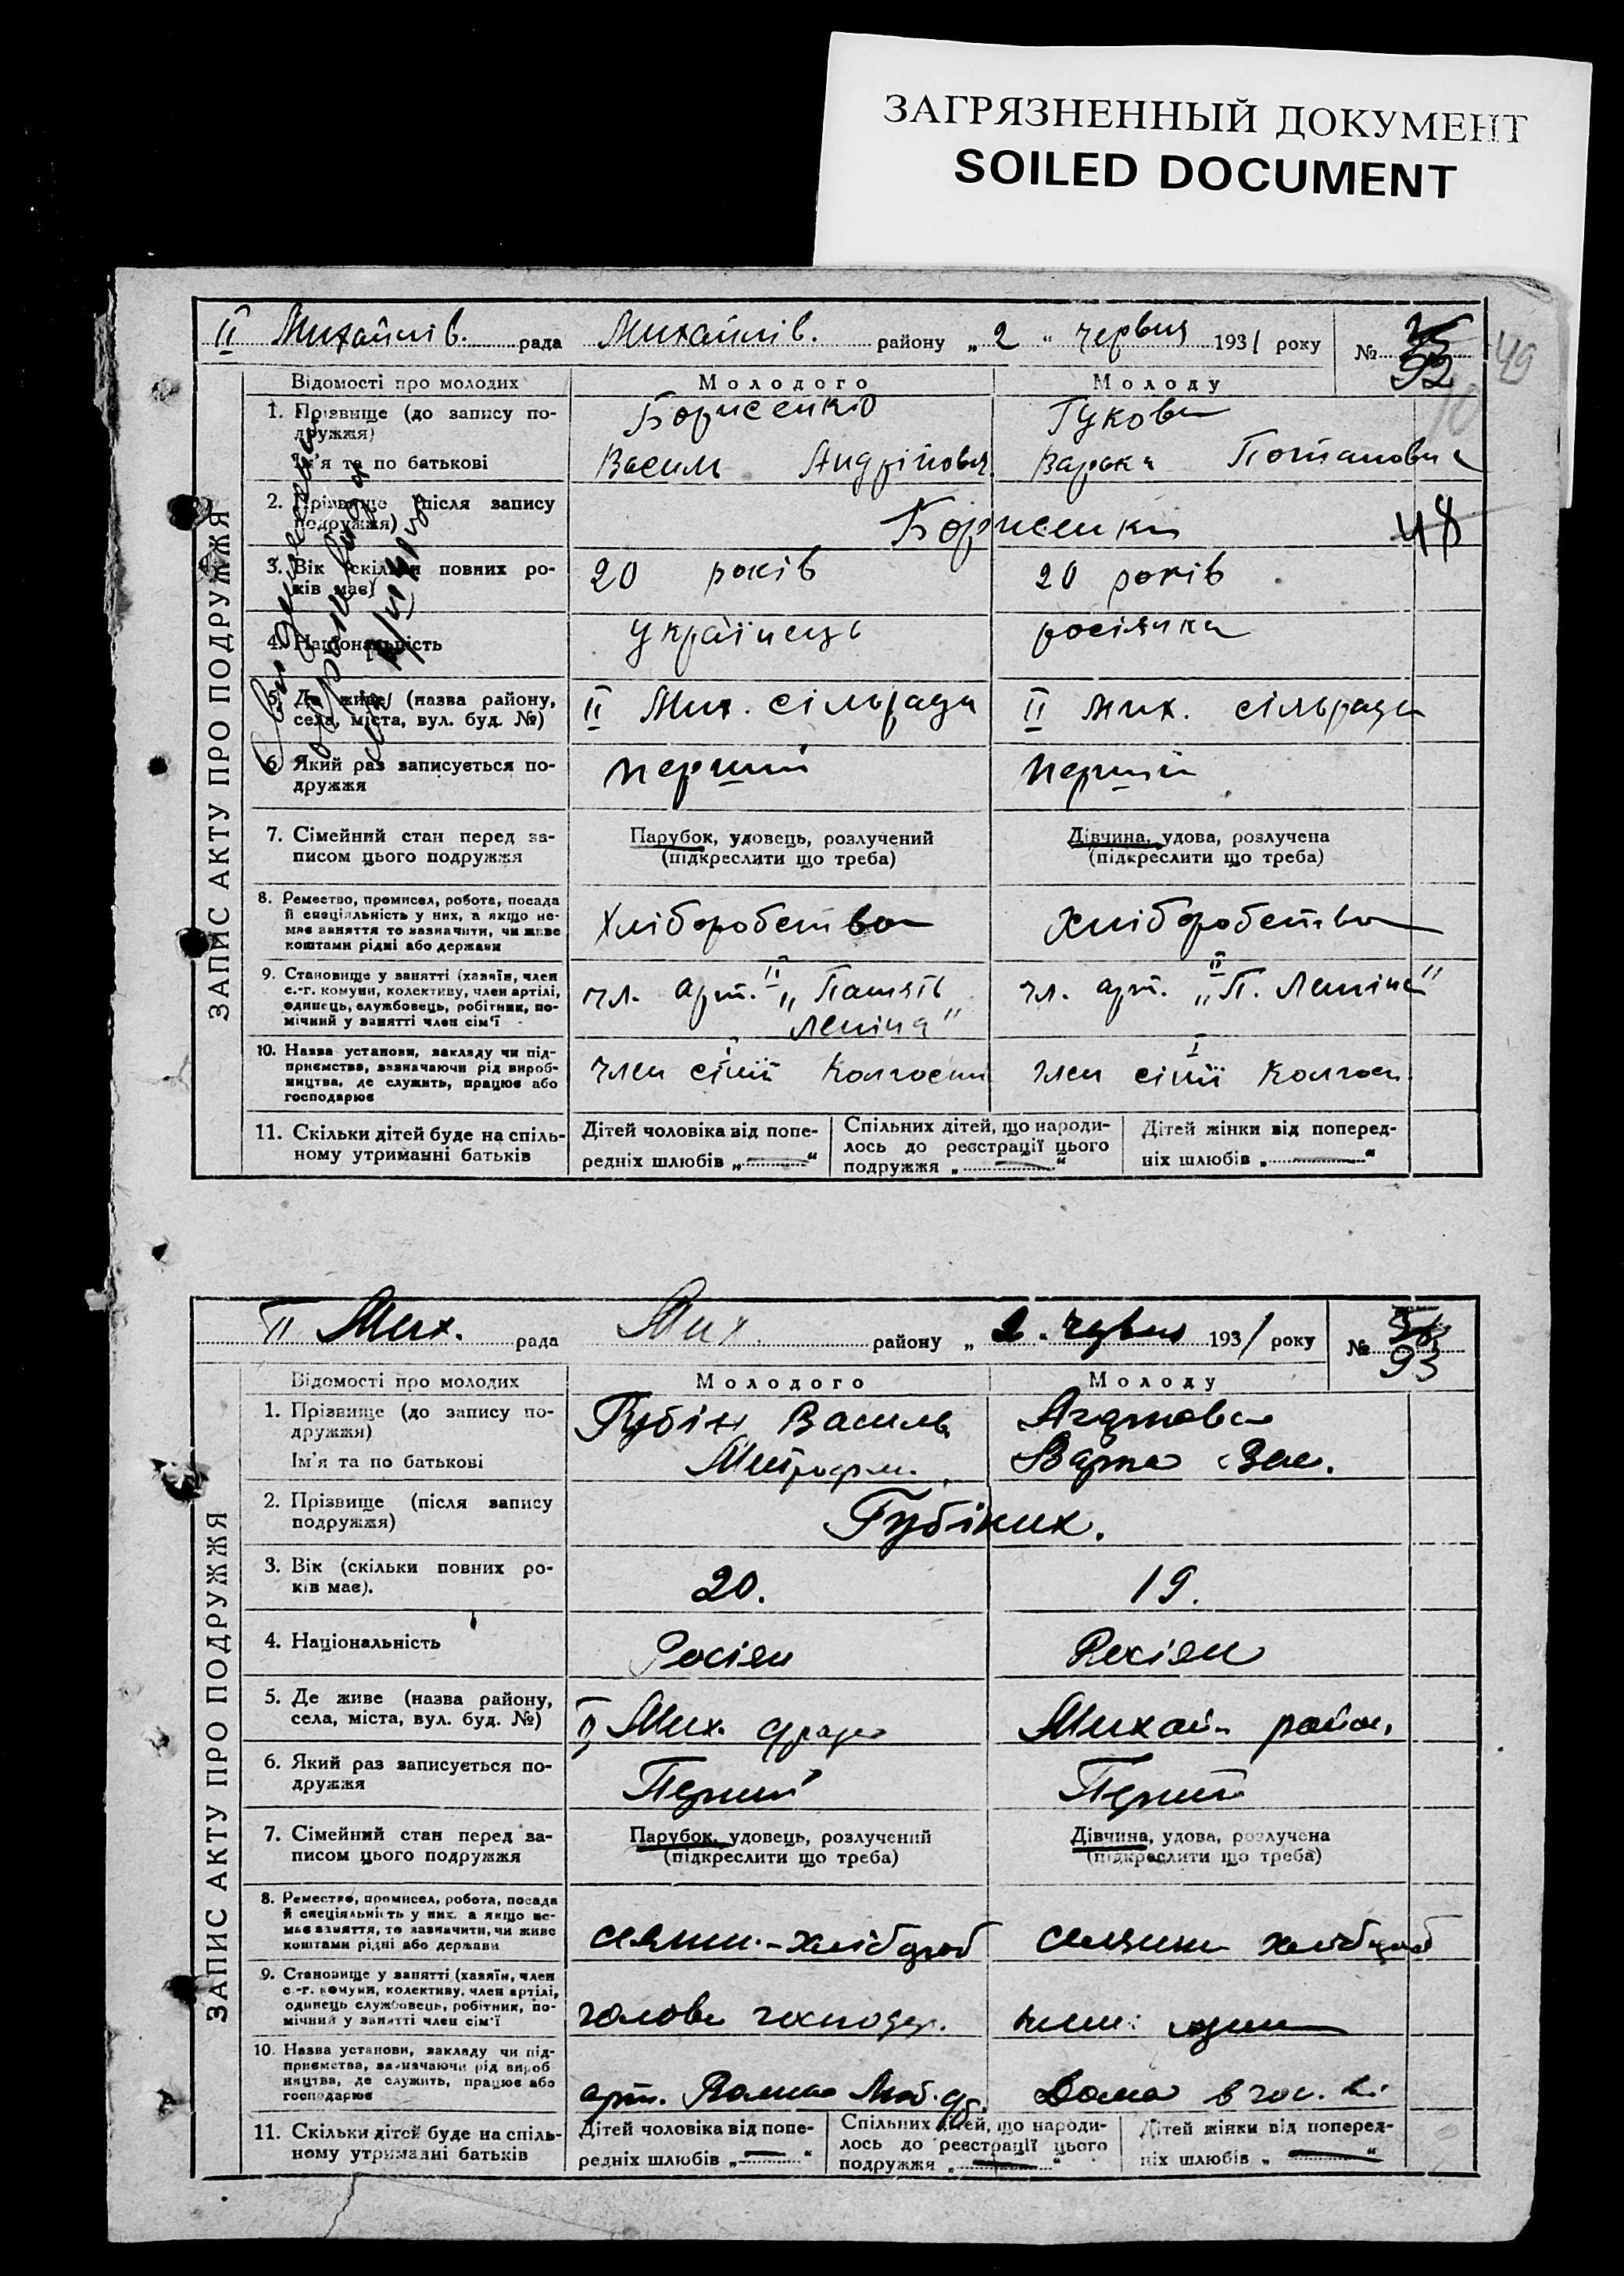 ЗАГРЯЗНЕННЫЙ ДОКУМЕНТ
SOILED DOCUMENT
II Михайлів. рада Михайлів. району „ 2 “ червня 1931 року №
92
49
Відомості про молодих
Молодого
Молоду
ЗАПИС АКТУ ПРО ПОДРУЖЖЯ
1. Прізвище (до запису по-
дружжя)
Борисенко
Гукова
Ім'я та по батькові
Василь Андрійович
Варька Потаповна
2. Прізвище (після запису
подружжя)
Борисенки
48
3. Вік (скільки повних ро-
ків має)
20 років
20 років
4. Національність
Українець
росіянка
5. Де живе (назва району,
села, міста, вул. буд. №)
II Мих. сільрада
II Мих. сільрада
6. Який раз записується по-
дружжя
перший
перший
7. Сімейний стан перед за-
писом цього подружжя
Парубок, удовець, розлучений
(підкреслити що треба)
Дівчина, удова, розлучена
(підкреслити що треба)
8. Ремество, промисел, робота, посада
й спеціяльність у них, а якщо не-
має заняття то зазначити, чи живе
коштами рідні або держави
Хліборобство
Хліборобство
9. Становище у занятті (хазяїн, член
с.-г. комуни, колективу, член артілі,
одинець, службовець, робітник, по-
мічний у занятті член сім'ї
чл. арт. „Память
Леніна“
чл. арт. „П. Леніна“
10. Назва установи, закладу чи під-
приємства, зазначаючи рід вироб-
ництва, де служить, працює або
господарює
член сімї колгосп
член сімї колгосп.
11. Скільки дітей буде на спіль-
ному утриманні батьків
Дітей чоловіка від попе-
редніх шлюбів „ — “
Спільних дітей, що народи-
лось до реєстрації цього
подружжя „ — “
Дітей жінки від поперед-
ніх шлюбів „ — “
II Мих. рада Мих. району „ 2 . червня 1931 року №
93
Відомості про молодих
Молодого
Молоду
ЗАПИС АКТУ ПРО ПОДРУЖЖЯ
1. Прізвище (до запису по-
дружжя)
Губін Василь
Ім'я та по батькові
Митроф.
Варка
2. Прізвище (після запису
подружжя)
Губіних.
3. Вік (скільки повних ро-
ків має).
20.
19.
4. Національність
Росіян
Росіян
5. Де живе (назва району,
села, міста, вул. буд. №)
II Мих.
Михай. район,
6. Який раз записується по-
дружжя
Перший
Перший
7. Сімейний стан перед за-
писом цього подружжя
Парубок, удовець, розлучений
(підкреслити що треба)
Дівчина, удова, розлучена
(підкреслити що треба)
8. Ремество, промисел, робота, посада
й спеціяльність у них, а якщо не-
має заняття, то зазначити, чи живе
коштами рідні або держави
селян.-хлібороб
селянин хлібороб
9. Становище у занятті (хазяїн, член
с.-г. комуни, колективу, член артілі,
одинець службовець, робітник, по-
мічний у занятті член сім'ї
голова господар.
10. Назва установи, закладу чи під-
приємства, зазначаючи рід вироб
ництва, де служить, працює або
господарює
арт.
Дома в гос.
11. Скільки дітей буде на спіль-
ному утриманні батьків
Дітей чоловіка від попе-
редніх шлюбів „ — “
Спільних дітей, що народи-
лось до реєстрації цього
подружжя „ — “
Дітей жінки від поперед-
ніх шлюбів „ — “